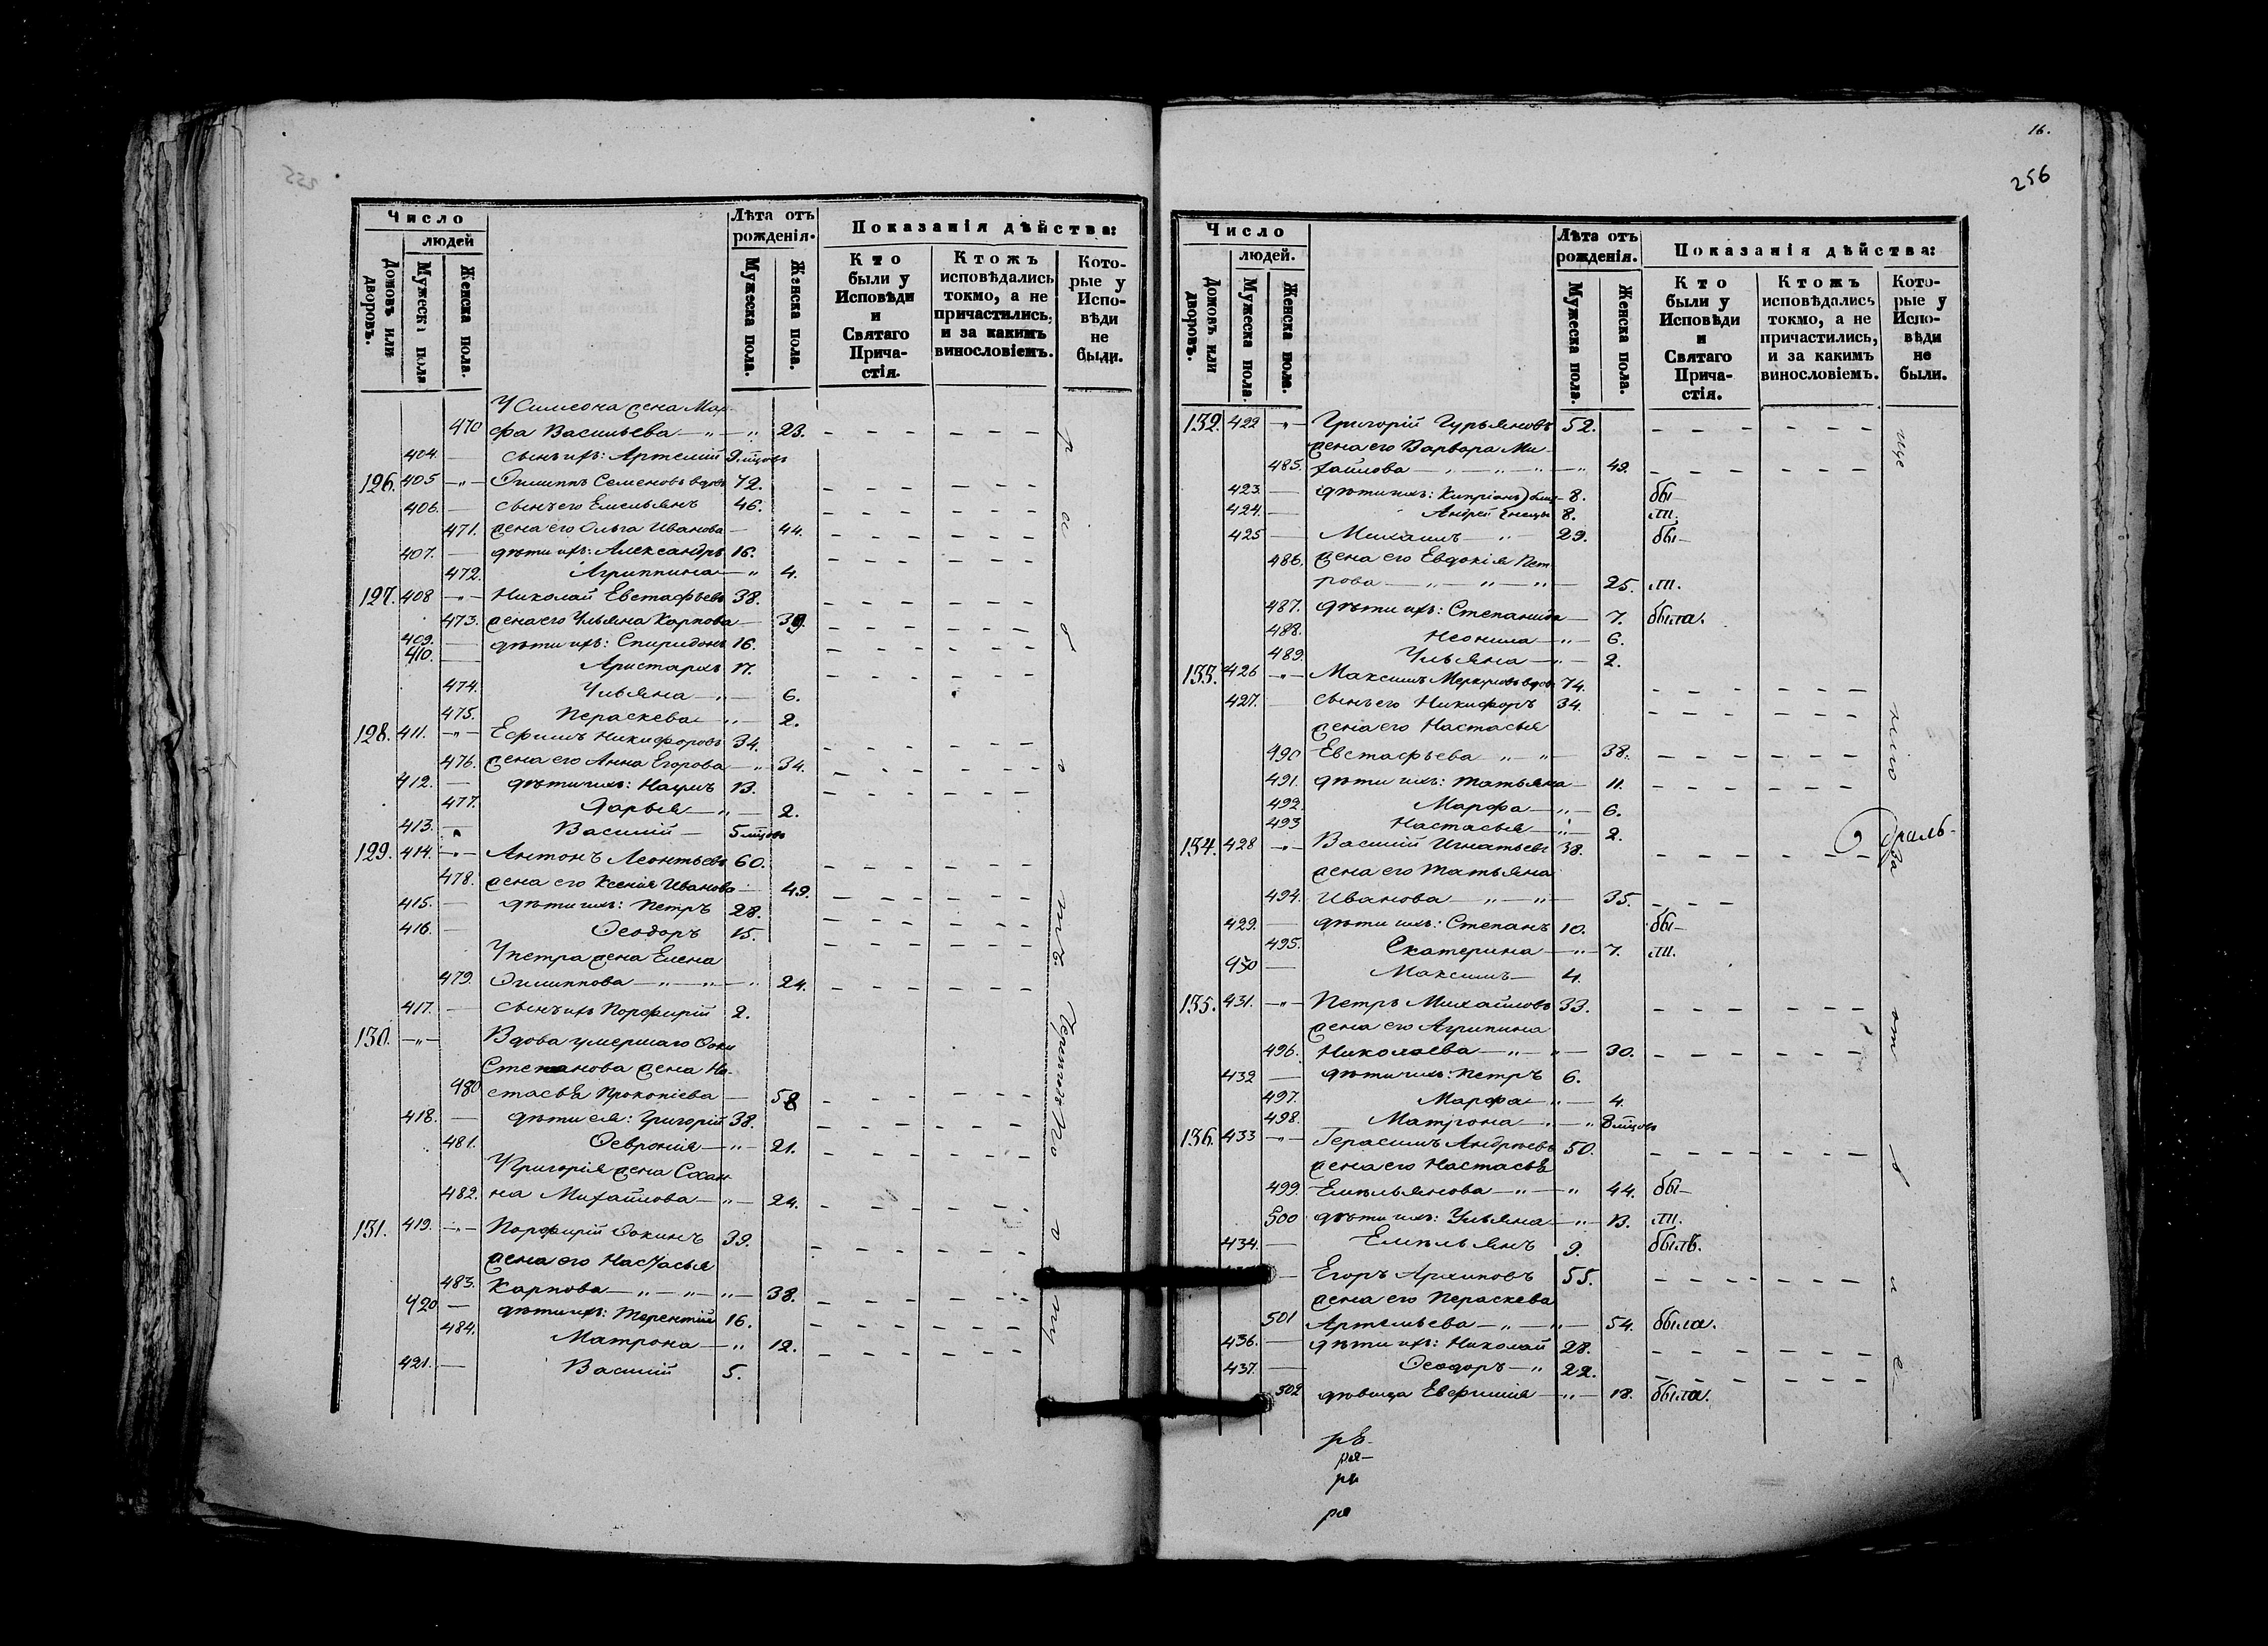 255
Число
людей
Домовъ или дворовъ.
Мужеска пола
Женска пола.
Лѣта отъ рожденія.
Мужеска пола.
Женска пола.
Показанія дѣйства:
Кто были у Исповѣди и Святаго Прича-стія.
Ктожъ исповѣдались токмо, а не причастились, и за какимъ винословіемъ.
Кото-рые у Испо-вѣди не были.
У Симеона жена Мар-
470 фа Васильева — " — " 23.
404. — сынъ ихъ: Артемій 9 мцовъ
126. 405 — " — Филиппъ Семеновъ вдовъ 72.
406. — сынъ его Емельянъ 46.
471. жена его Ольга Иванова — 44.
407. — дѣти ихъ: Александръ 16.
472. Агриппина — " 4.
127. 408 — " — Николай Евстафьевъ 38.
473. жена его Ульяна Карпова — 39.
409. — дѣти ихъ: Спиридонъ 16.
410. — Аристархъ
474. Ульяна — " — 6.
475. Пераскева — " — 2.
128. 411. — " — Ефимъ Никифоровъ 34.
476. жена его Анна Егорова — " 34.
412. — дѣти ихъ: Наумъ 13.
477. Дарья — " — 2.
413. — Василій — 5 мцовъ
129. 414. — " — Антонъ Леонтьевъ 60.
478. жена его Ксенія Иванова — 49.
415. — дѣти ихъ: Петръ 28.
416. — Ѳеодоръ 15.
У Петра жена Елена
479. Филиппова — " — " — " 24.
417. — сынъ ихъ Порфирій 2.
130. — " — Вдова умершаго Фоки
Степанова жена На-
480 стасья Прокопіева — 58
418. — дѣти ея: Григорій 38.
481. Февронія — " — 21.
У Григорія жена Сосан-
482. на Михайлова — " — 24.
131. 419. — " — Порфирій Фокинъ 39.
жена его Настасья
483. Карпова — " — " — " — 38.
420 — дѣти ихъ: Терентій 16.
484. Матрона — " 12.
421. — Василій 5.
16.
256
Число
людей.
Домовъ или дворовъ.
Мужеска пола.
Женска пола.
Лѣта отъ рожденія.
Мужеска пола.
Женска пола.
Показанія дѣйства:
Кто были у Исповѣди и Святаго Прича-стія.
Ктожъ исповѣдались токмо, а не причастились, и за какимъ винословіемъ.
Кото-рые у Испо-вѣди не были.
132. 422 — " — Григорій Гурьяновъ 52.
жена его Варвара Ми-
485. хайлова — " — " — " — " 49.
423. — дѣти ихъ: Кипріанъ) близ- 8. бы-
424. — Андрей (нецы 8. ли.
425 — Михаилъ — " 29. бы-
486. жена его Евдокія Пет-
рова — " — " — " — 25. ли.
487. дѣти ихъ: Степанида — 7. была.
488. Неонила — " — 6.
489. Ульяна — " — 2.
133. 426 — " — Максимъ Меркуловъ вдовъ 74.
427. сынъ его Никифоръ 34.
жена его Настасья
490 Евстафьева — " — " — 38.
491. дѣти ихъ: Татьяна — 11.
492. Марфа — " — 6.
493 Настасья — " — 2.
134. 428 — " — Василій Игнатьевъ 38.
жена его Татьяна
494. Иванова — " — " — 35.
429. — дѣти ихъ: Степанъ 10. бы-
495. Екатерина — " — 7. ли.
430 — Максимъ — 4.
135. 431. — " — Петръ Михайловъ 33.
жена его Агрипина
496. Николаева — " — " — 30.
432 — дѣти ихъ: Петръ 6.
497. Марфа — " — 4.
498. Матрона — " — " 8 мцовъ
136. 433 — " — Герасимъ Андреевъ 50.
жена его Настасья
499. Емельянова — " — " 44. бы-
500 дѣти ихъ: Ульяна — " — 13. ли.
434. — Емельянъ 9. былъ.
— Егоръ Архиповъ 55.
жена его Пераскева
501 Артемьева — " — " — 54. была.
436. — дѣти ихъ: Николай 28.
437. — Ѳеодоръ — " 22.
502 дѣвица Евфимія — " — 18. была.